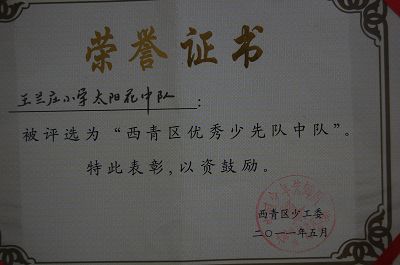 荣誉证书
王兰庄小学太阳花中队：
被评选为“西青区优秀少先队中队”。
特此表彰，以资鼓励。
西青区少工委
二〇一一年五月